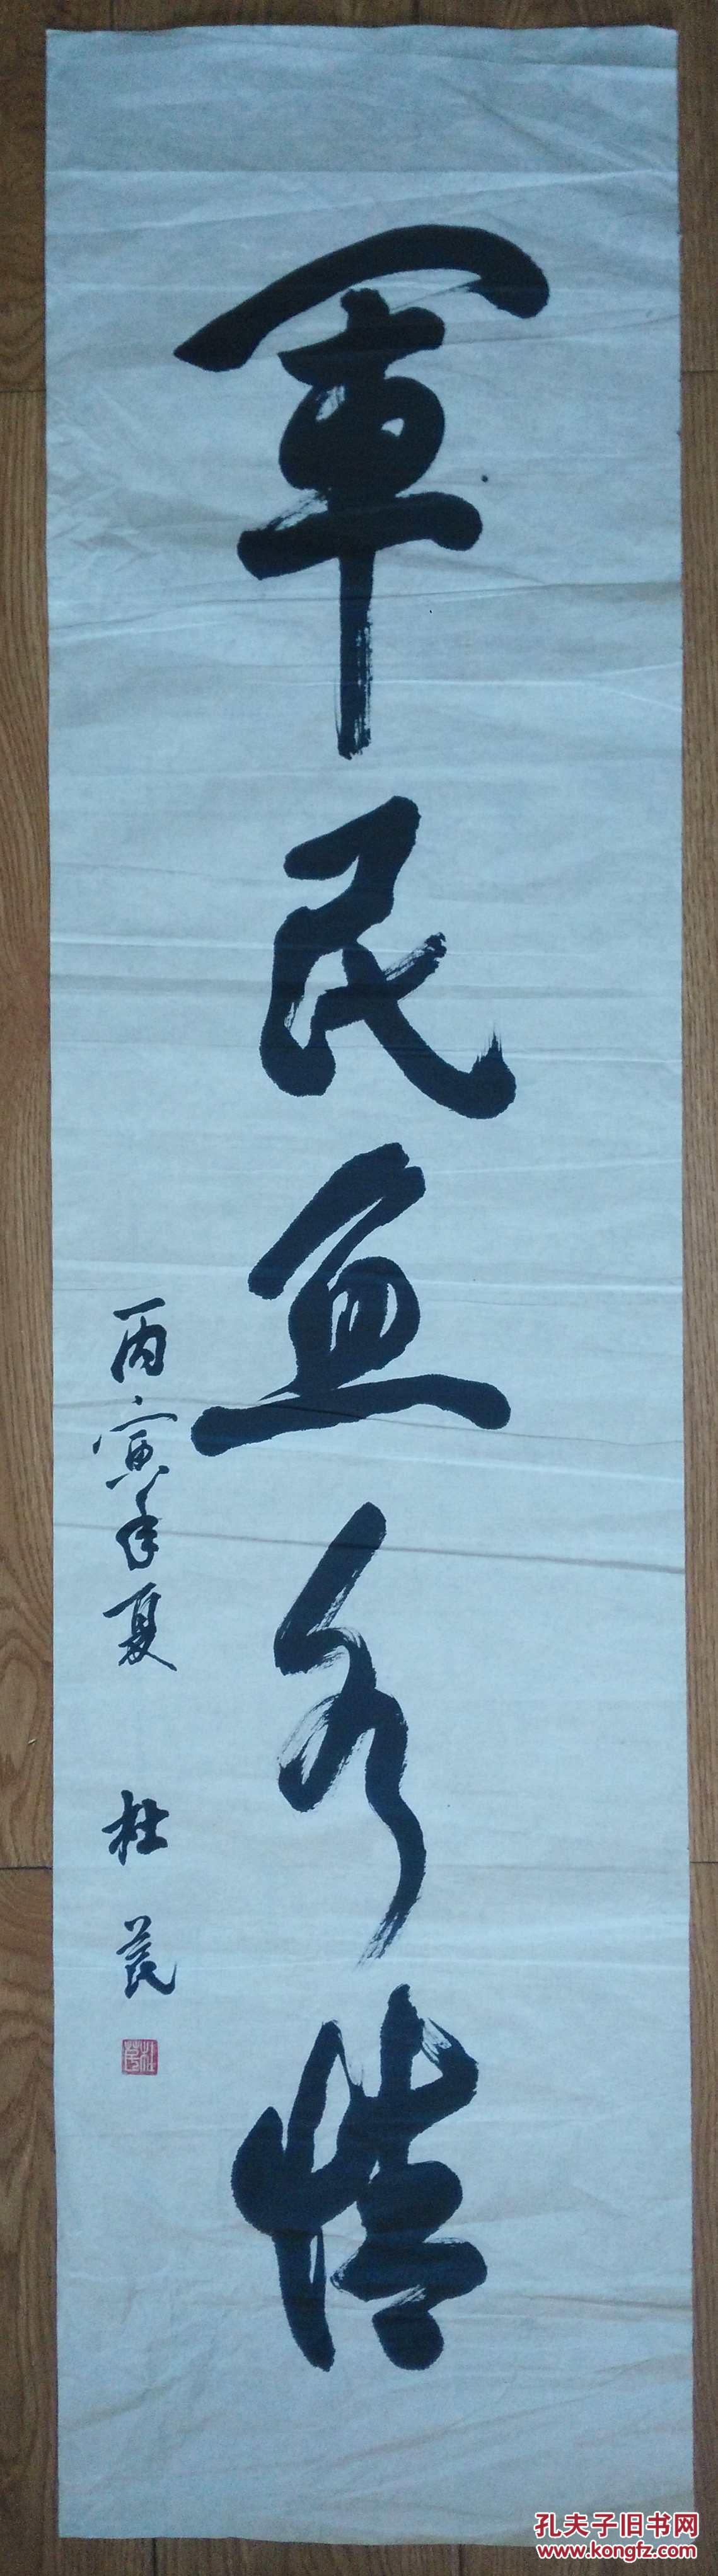 軍民魚水情
丙寅年夏
杜芪
孔夫子旧书网
www.kongfz.com